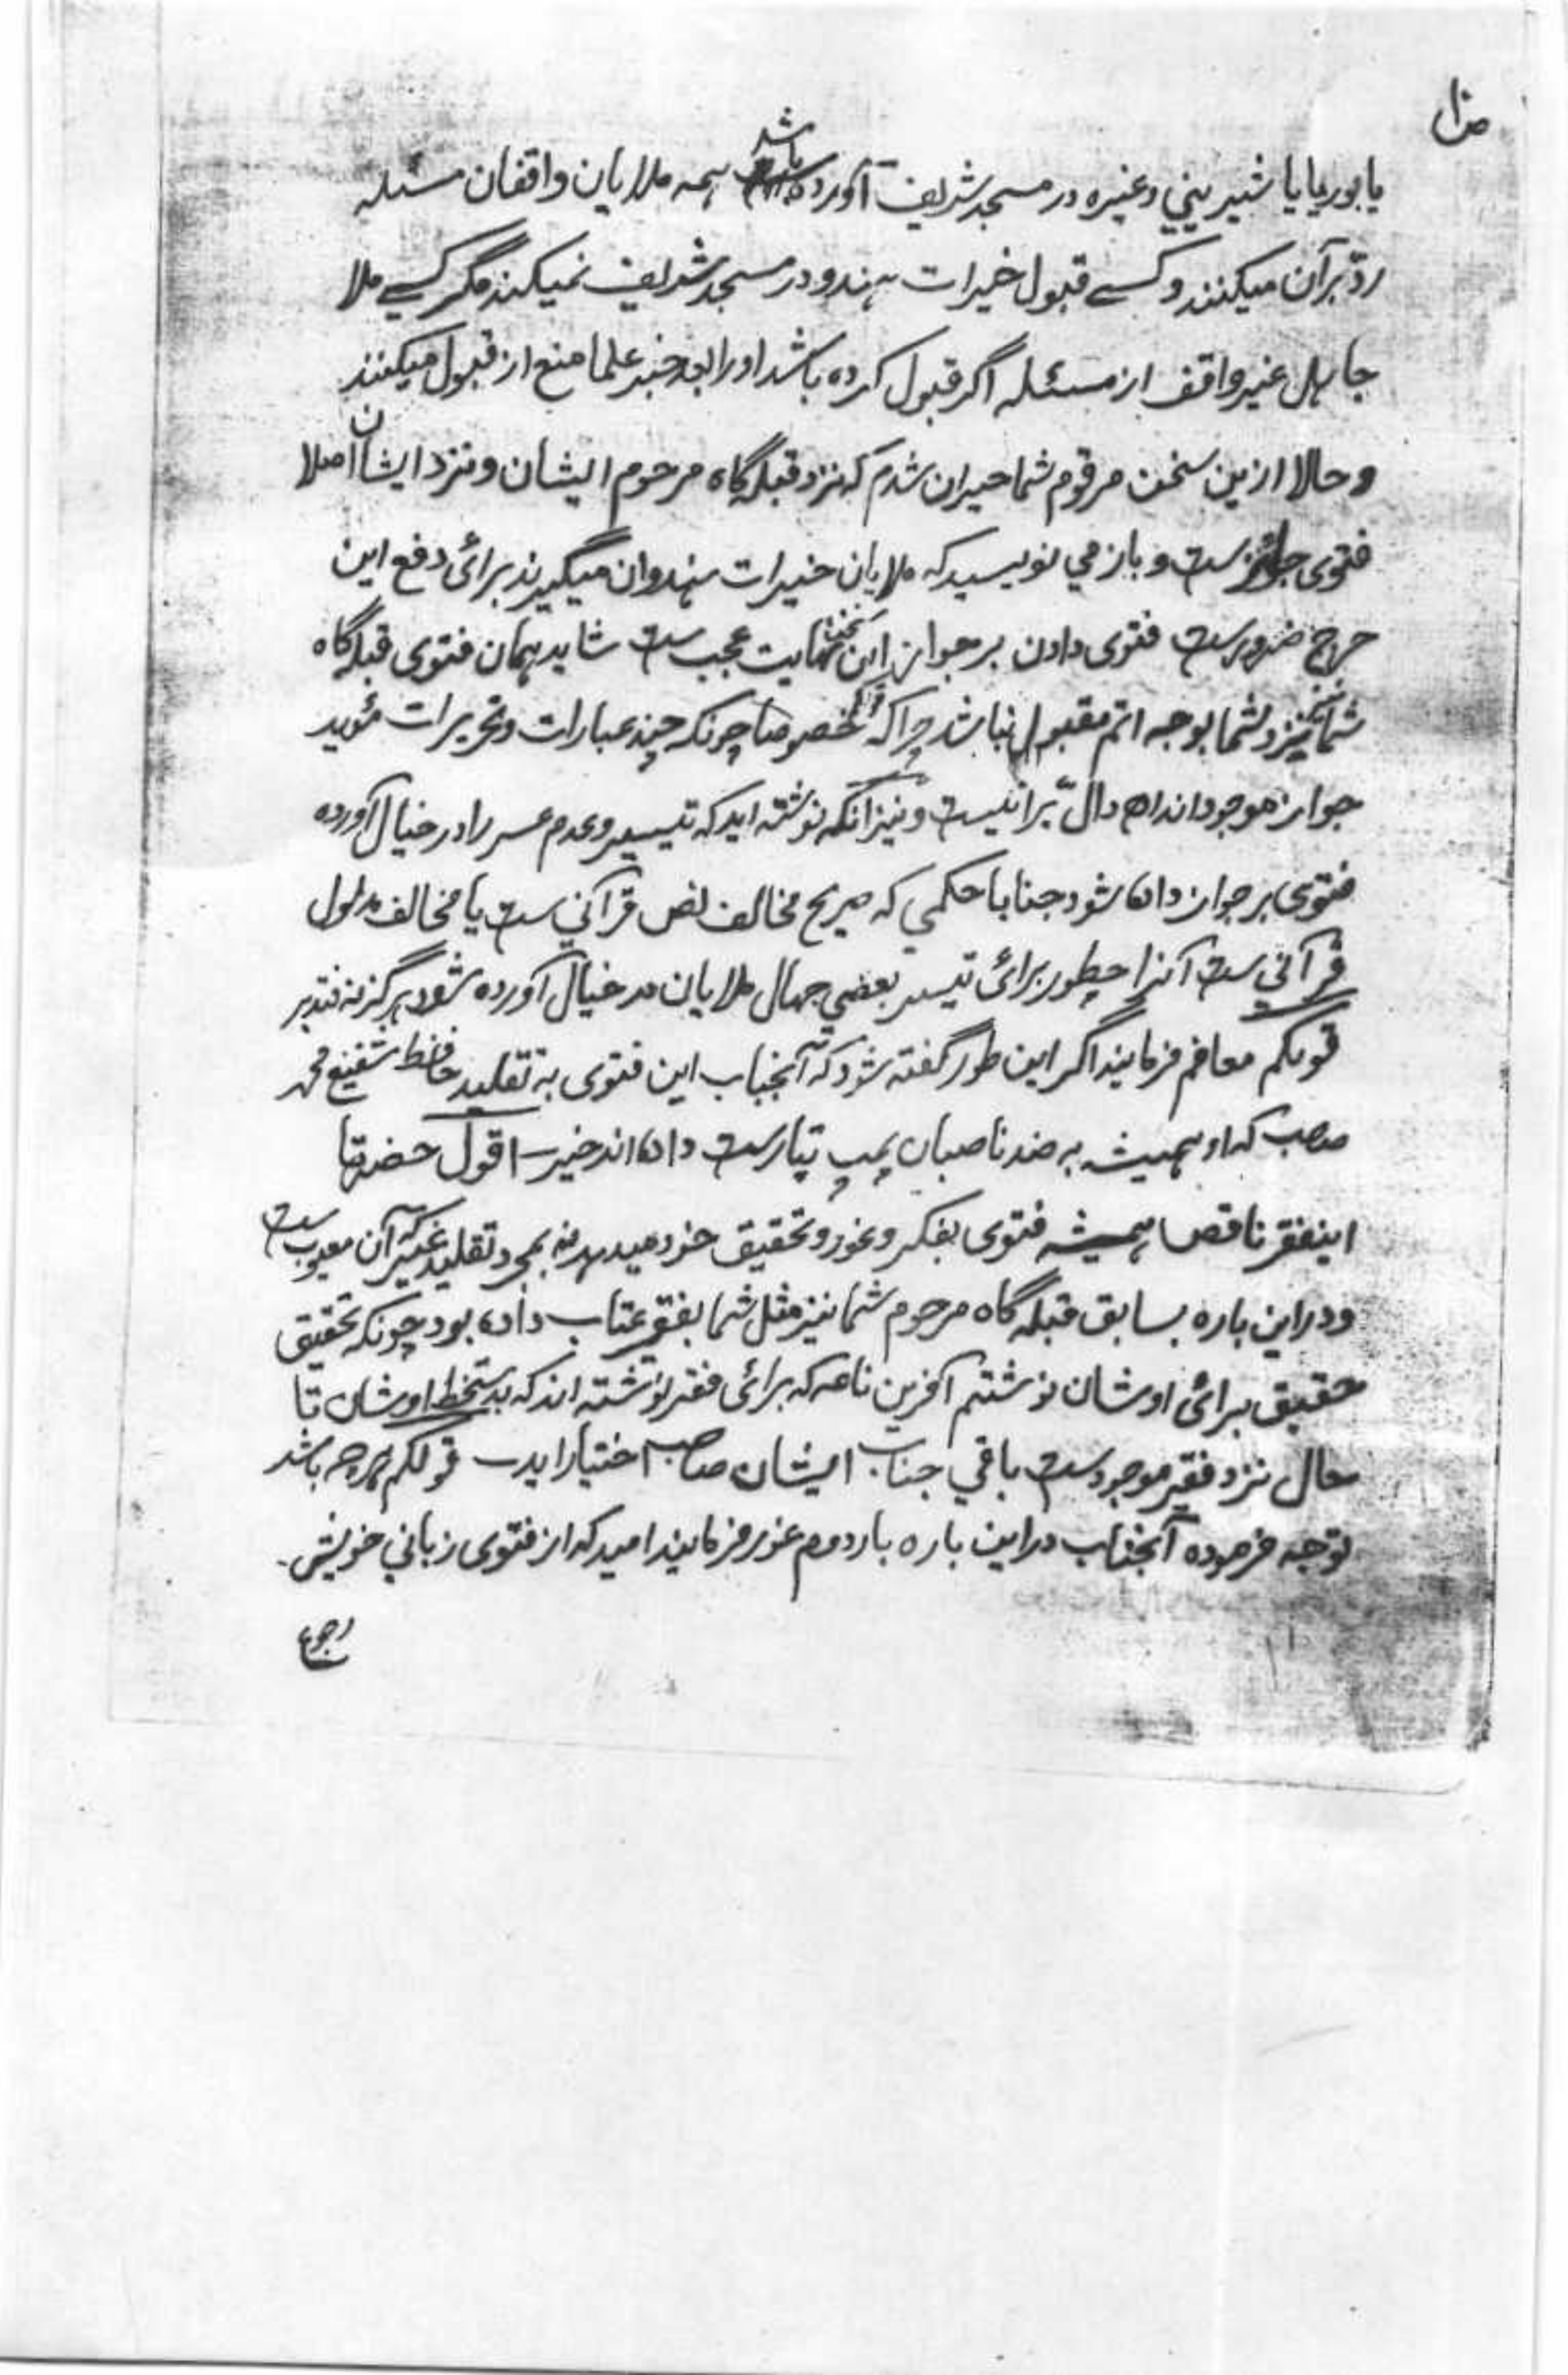 یا بوریا یا شیرینی وغیره در مسجد شریف آورده باشد همه ملایان واقفان مسئله
ردّ برآن میکنند و کسے قبول خیرات هندو در مسجد شریف نمیکند مگر کسے ملا
جاهل غیر واقف از مسئله اگر قبول کرده باشد او را بعد خبر علما منع از قبول میکنند
وحالا ازین سخن مرقوم شما حیران شدم که نزد قبله گاه مرحوم ایشان و نزد ایشان اصلا
فتوی جائز ست و باز می نویسید که ملایان خیرات هندوان میگیرند برائ دفع این
حرج ضرورست فتوی دادن بر جواز این سخن نهایت عجیب ست شاید همان فتوی قبله گاه
شما نیز نزد شما بوجه اتم مقبول نباشد چراکه خصوصا چونکه چند عبارات وتحریرات مؤید
جواز موجود اند اھ دالّ برانیست ونیز آنکه نوشته اید که تیسیر وعدم عسر را در خیال آورده
فتوی بر جواز داده شود جنابا حکمی که صریح مخالف نص قرآنی ست یا مخالف مدلول
قرآنی ست آنرا چطور برائ تیسیر بعضی جهال ملایان در خیال آورده شود هرگز نه فتدبر
قولکم معافم فرمایند اگر این طور گفته شود که آنجناب این فتوی به تقلید حافظ شفیع محمد
صاحب که او همیشه به ضد ناصبان پمپ تیارست داده اند خیر اقول حضرتا
اینفقیر ناقص همیشه فتوی بفکر وغور وتحقیق خود میدهد نه بمجرد تقلید غیر که آن معیوب ست
ودر این باره سابق قبله گاه مرحوم شما نیز مثل شما بفقیر عتاب داده بود چونکه تحقیق
حقیق برائ اوشان نوشتم آخرین نامه که برائ فقیر نوشته اند که بدستخط اوشان تا
حال نزد فقیر موجود ست باقی جناب ایشان صاحب اختیار اید قولکم هرچه باشد
توجه فرموده آنجناب در این باره بار دوم غور فرمایند امید که از فتوی زبانی خویش
رجوع